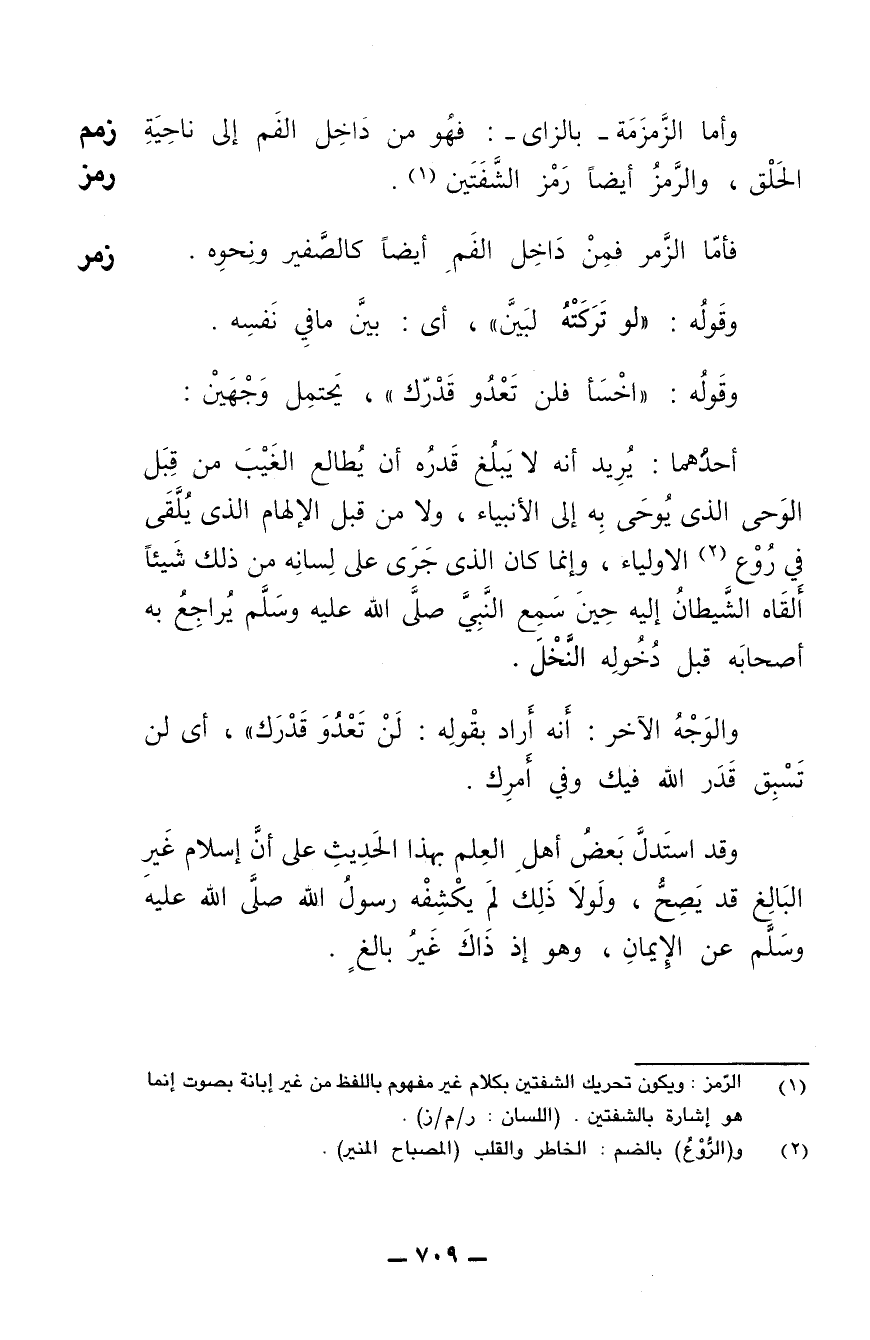 وأما الزَّمزَمَة ـ بالزاى ـ : فهُو من دَاخِل الفَم إلى ناحِيَةِ زمم
الحَلْق ، والرَّمزُ أيضاً رَمْز الشَّفَتَين (١) . رمز
فأمّا الزَّمر فمِنْ دَاخِل الفَمِ أيضاً كالصَّفير ونِحوِه . زمر
وقَولُه : «لو تَرَكَتْهُ لبَينَّ» ، أى : بينَّ مافِي نَفسِه .
وقَولُه : «اخْسَأ فلن تَعْدُو قَدْرَك» ، يَحتمِل وَجْهَينْ :
أحدُهما : يُرِيد أنه لا يَبلُغ قَدرُه أن يُطالع الغَيْبَ من قِبَل
الوَحى الذى يُوحَى بِه إلى الأنبياء ، ولا من قبل الإلهام الذى يُلَّقَى
فِي رُوْع (٢) الاولياء ، وإنما كان الذى جَرَى على لِسانِه من ذلك شَيئاً
أَلقَاه الشَّيطانُ إليه حِينَ سَمِع النَّبِيَّ صلَّى الله عليه وسَلَّم يُراجِعُ به
أصحابَه قبل دُخُولِه النَّخْلَ .
والوَجْهُ الآخر : أَنه أَراد بقْولِه : لَنْ تَعْدُوَ قَدْرَك» ، أى لن
تَسْبِق قَدَر الله فيك وفي أَمرِك .
وقد استَدلَّ بَعضُ أهلِ العِلم بهذا الحَديثِ على أنَّ إسلام غَيرِ
البَالِغ قد يَصِحُّ ، ولَولاَ ذَلِك لَم يكْشِفْه رسولُ الله صلَّى الله عليه
وسَلَّم عن الإيمانِ ، وهو إذ ذَاكَ غَيرُ بالغٍ .
(١) الرّمز : ويكون تحريك الشفتين بكلام غير مفهوم باللفظ من غير إبانة بصوت إنما
هو إشارة بالشفتين . (اللسان : ر/م/ز) .
(٢) و(الرُّوْعُ) بالضم : الخاطر والقلب (المصباح المنير) .
ـ ٧٠٩ ـ